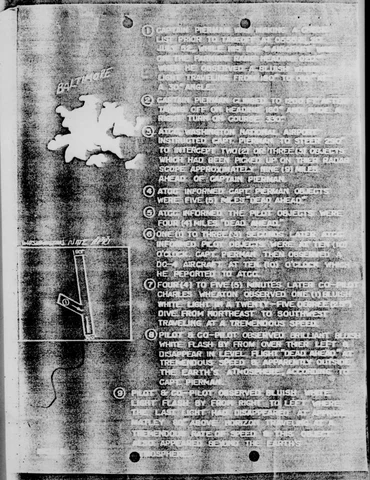 BALTIMORE
WASHINGTON NAT'L APRT
1 CAPTAIN PIERMAN
LIST PRIOR TO TAKEOFF AT
JULY 52, WHILE HIS
HE OBSERVED A BLUISH
LIGHT TRAVELING FROM
A 30° ANGLE.
2 CAPTAIN PIERMAN CLIMBED TO 1200 FEET AFTER
TAKING OFF ON HEADING 180°, MADE A
RIGHT TURN ON COURSE 330°
3 ATCC WASHINGTON NATIONAL AIRPORT
INSTRUCTED CAPT. PIERMAN TO STEER 290°
TO INTERCEPT TWO (2) OR THREE (3) OBJECTS
WHICH HAD BEEN PICKED UP ON THIER RADAR
SCOPE APPROXIMATELY NINE (9) MILES
AHEAD OF CAPTAIN PIERMAN.
4 ATCC INFORMED CAPT. PIERMAN OBJECTS
WERE FIVE (5) MILES "DEAD AHEAD."
5 ATCC INFORMED THE PILOT OBJECTS WERE
FOUR (4) MILES "DEAD AHEAD."
6 ONE (1) TO THREE (3) SECONDS LATER ATCC
INFORMED PILOT OBJECTS WERE AT TEN (10)
O'CLOCK. CAPT. PIERMAN THEN OBSERVED A
DC-4 AIRCRAFT AT TEN (10) O'CLOCK WHICH
HE REPORTED TO ATCC.
7 FOUR (4) TO FIVE (5) MINUTES LATER CO-PILOT
CHARLES WHEATON OBSERVED ONE (1) BLUISH
WHITE LIGHT IN A TWENTY-FIVE DEGREE (25°)
DIVE FROM NORTHEAST TO SOUTHWEST
TRAVELING AT A TREMENDOUS SPEED.
8 PILOT & CO-PILOT OBSERVED BRILLIANT BLUISH
WHITE FLASH BY FROM OVER THIER LEFT &
DISAPPEAR IN LEVEL FLIGHT "DEAD AHEAD" AT
TREMENDOUS SPEED & APPARENTLY OUTSIDE
THE EARTH'S ATMOSPHERE, ACCORDING TO
CAPT. PIERMAN.
9 PILOT & CO-PILOT OBSERVED BLUISH WHITE
LIGHT FLASH BY FROM RIGHT TO LEFT WHERE
THE LAST LIGHT HAD DISAPPEARED AT APPROXI-
MATLEY ABOVE HORIZON TRAVELING AT A
TREMENDOUS RATE OF SPEED & THIS OBJECT
ALSO APPEARED BEYOND THE EARTH'S
ATMOSPHERE.